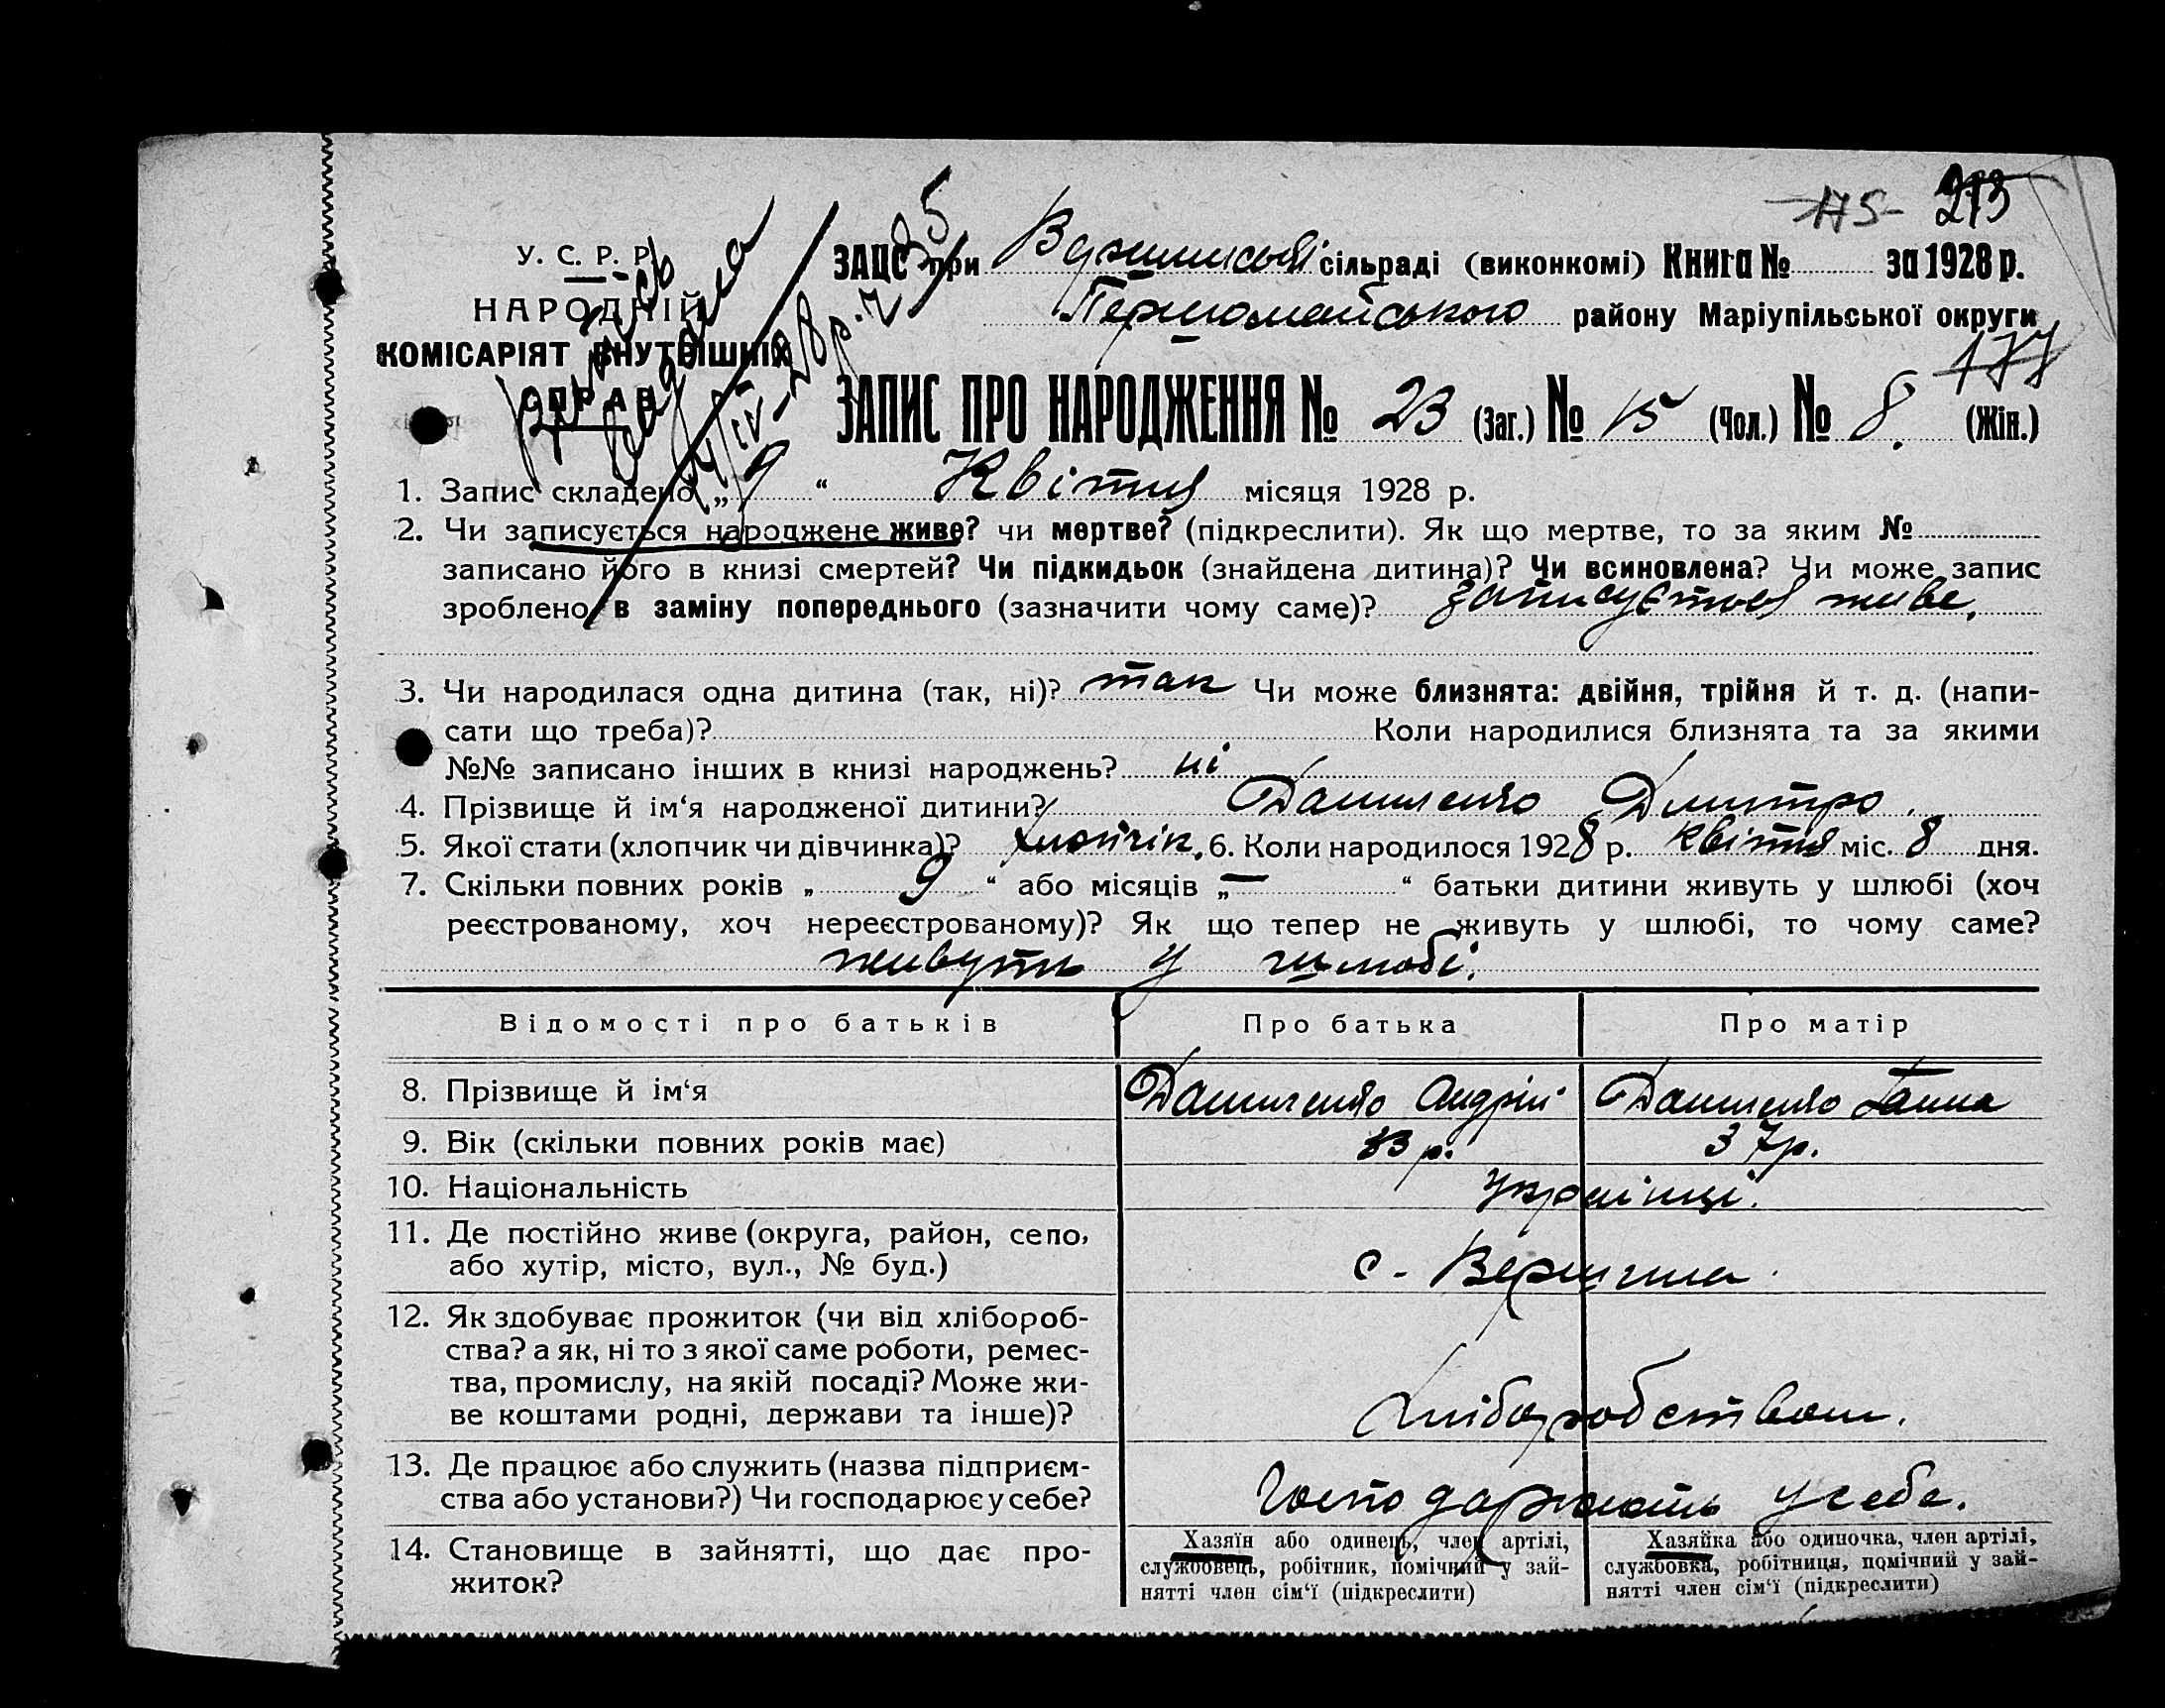 175 273
У. С. Р. Р. ЗАЦС при Вершинській сільраді (виконкомі) Книга № за 1928 р.
НАРОДНІЙ Першомайського району Маріупільської округи
КОМІСАРІЯТ ВНУТРІШНІХ 177
СПРАВ ЗАПИС ПРО НАРОДЖЕННЯ № 23 (Заг.) № 15 (Чол.) № 8. (Жін.)
1. Запис складено „ 9 “ Квітня місяця 1928 р.
2. Чи записується народжене живе? чи мертве? (підкреслити). Як що мертве, то за яким №
записано його в книзі смертей? Чи підкидьок (знайдена дитина)? Чи всиновлена? Чи може запис
зроблено в заміну попереднього (зазначити чому саме)? записується живе.
3. Чи народилася одна дитина (так, ні)? так Чи може близнята: двійня, трійня й т. д. (напи-
сати що треба)? Коли народилися близнята та за якими
№№ записано інших в книзі народжень? ні
4. Прізвище й ім‘я народженої дитини? Даниленко Дмитро.
5. Якої стати (хлопчик чи дівчинка)? хлопчік. 6. Коли народилося 1928 р. квітня міс. 8 дня.
7. Скільки повних років „ 9 “ або місяців „ — “ батьки дитини живуть у шлюбі (хоч
реєстрованому, хоч нереєстрованому)? Як що тепер не живуть у шлюбі, то чому саме?
живуть у шлюбі.
Відомості про батьків Про батька Про матір
8. Прізвище й ім‘я Даниленко Андрій Даниленко Ганна
9. Вік (скільки повних років має) 33 р. 37 р.
10. Національність Українці.
11. Де постійно живе (округа, район, село,
або хутір, місто, вул., № буд.) с. Вершина.
12. Як здобуває прожиток (чи від хлібороб-
ства? а як, ні то з якої саме роботи, ремес-
тва, промислу, на якій посаді? Може жи-
ве коштами родні, держави та інше)? Хліборобством.
13. Де працює або служить (назва підприєм-
ства або установи?) Чи господарює у себе? Господарюють у себе.
14. Становище в зайнятті, що дає про-
житок?
Хазяїн або одинець, член артілі,
службовець, робітник, помічний у зай-
нятті член сім‘ї (підкреслити)
Хазяйка або одиночка, член артілі,
службовка, робітниця, помічний у зай-
нятті член сім‘ї (підкреслити)